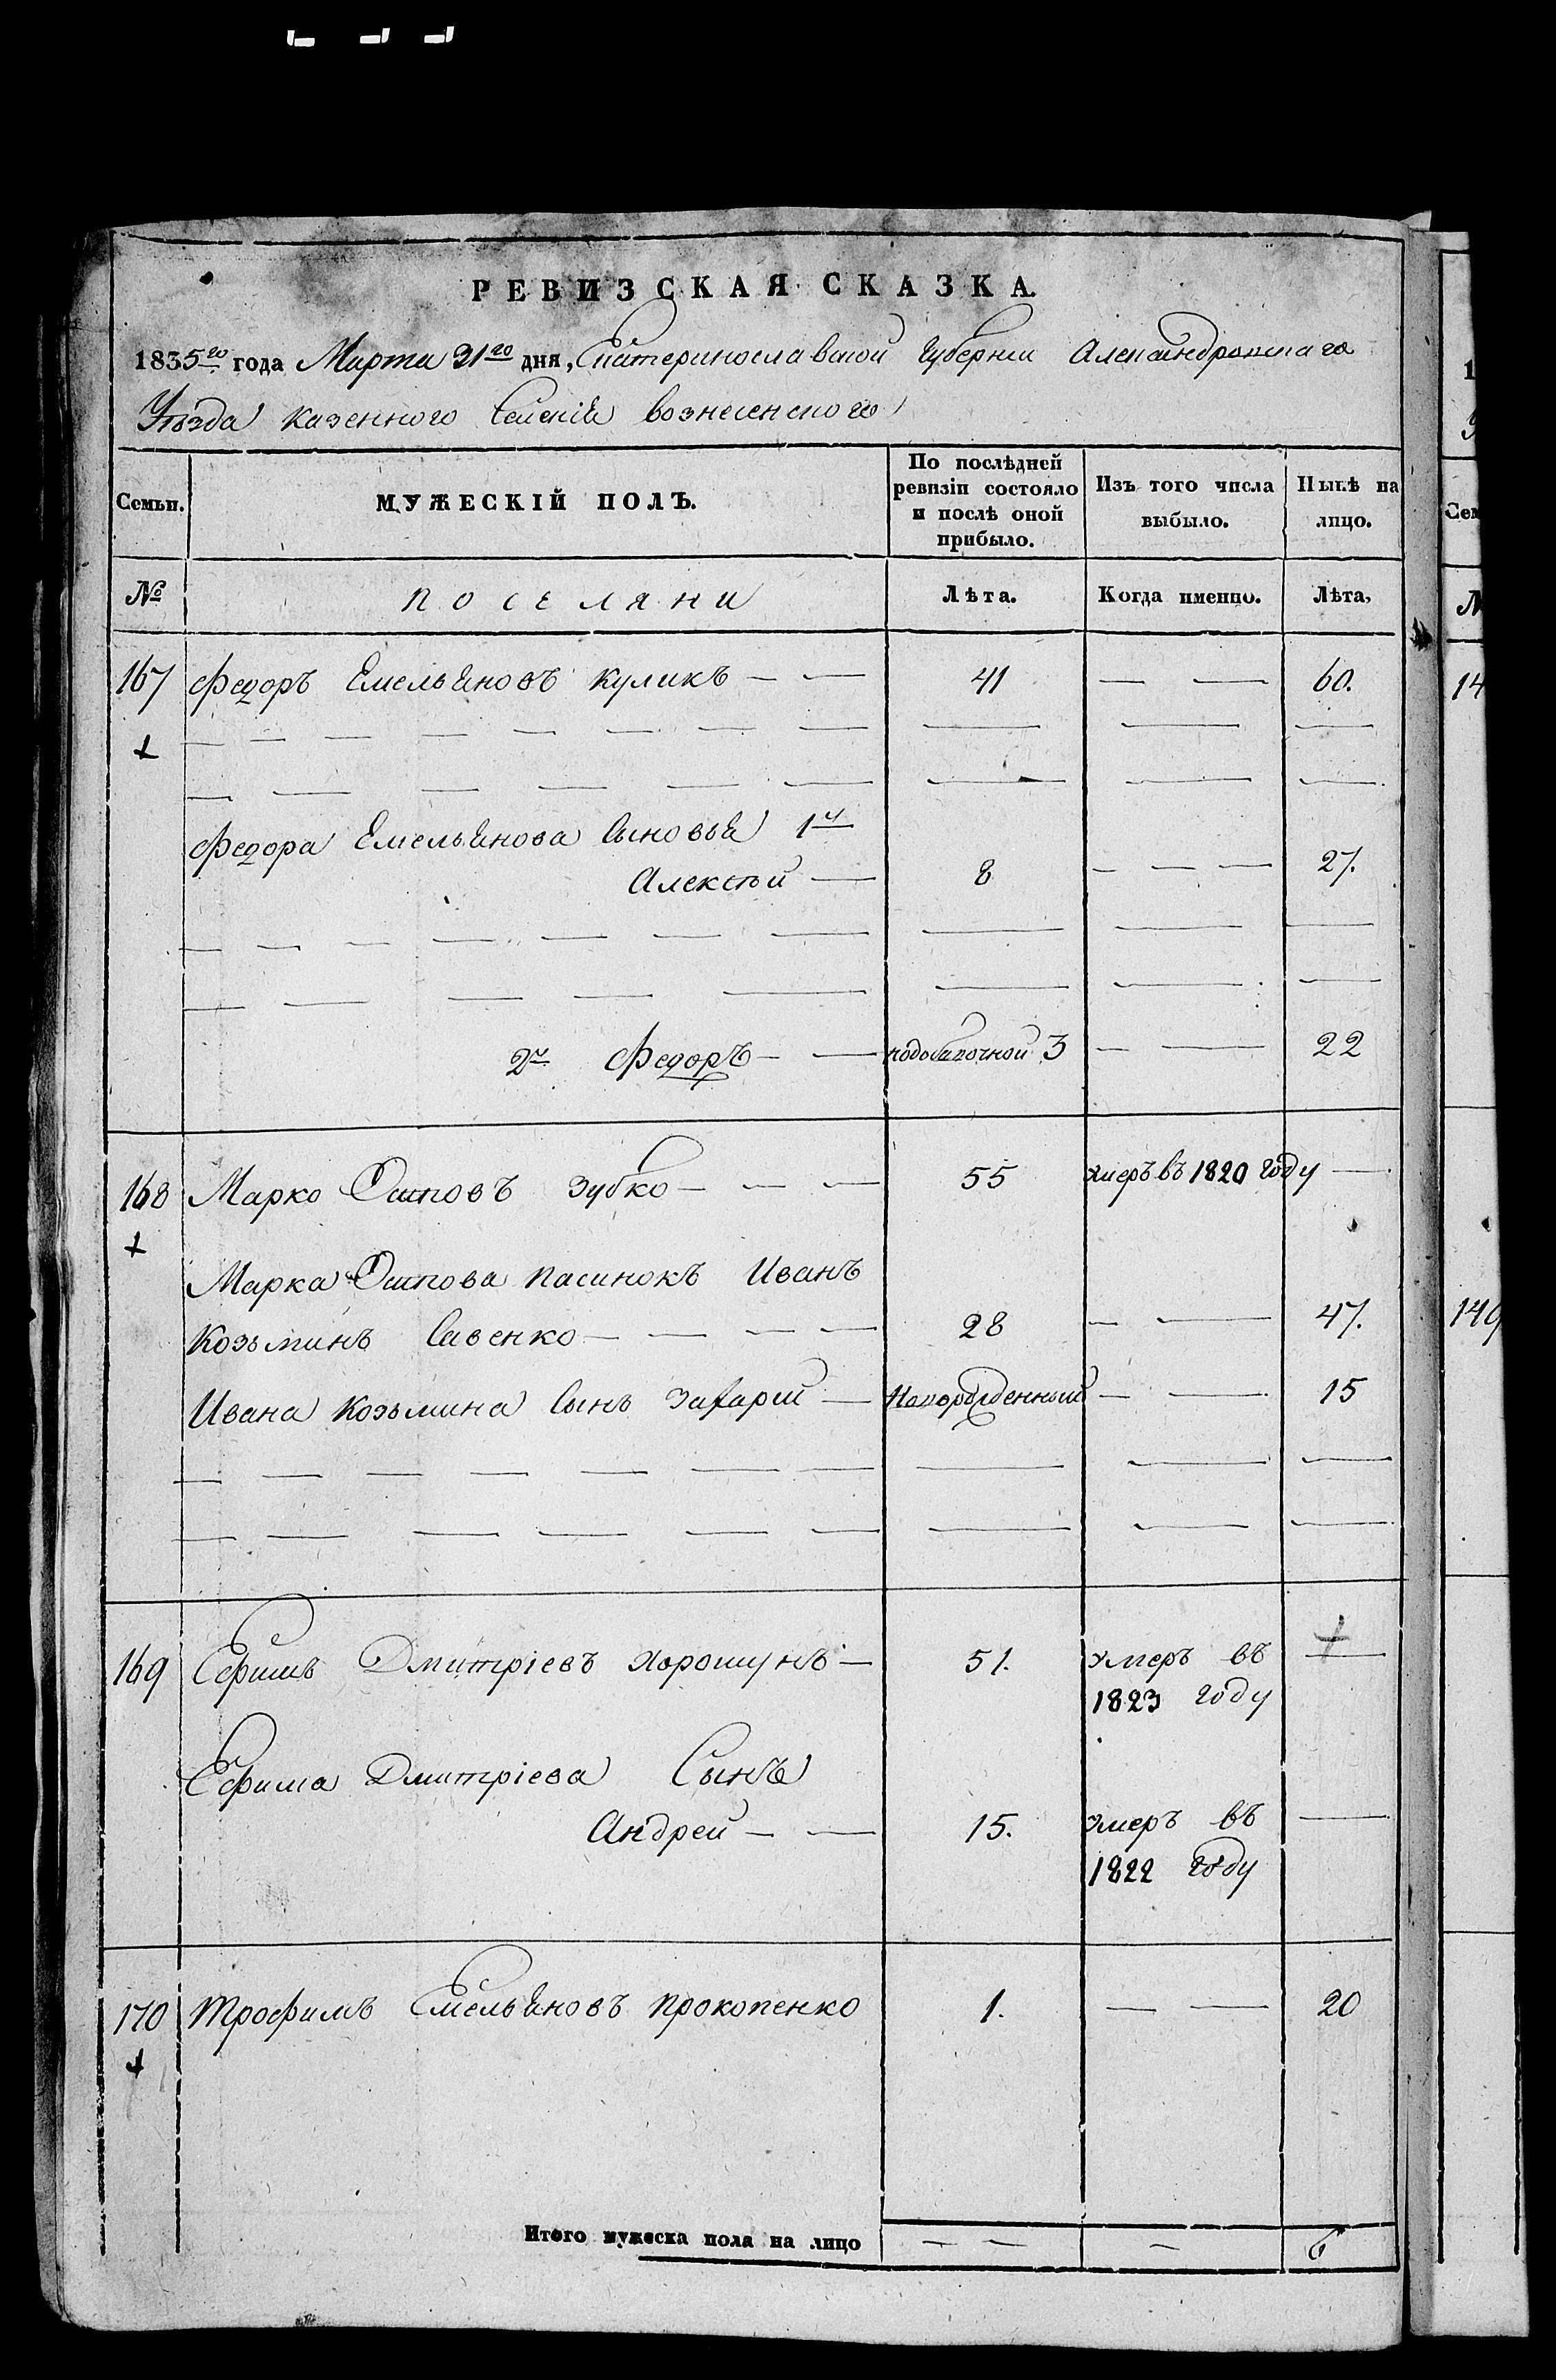 РЕВИЗСКАЯ СКАЗКА.
1835го года Марта 31го дня, Екатеринославской Губернии Александровскаго
Уѣзда казенного Селенія вознесенского
Семьи. МУЖЕСКІЙ ПОЛЪ. По послѣдней ревизіи состояло и послѣ оной прибыло. Изъ того числа выбыло. Нынѣ на лицо.
№ поселяни Лѣта. Когда именно. Лѣта,
167 Федоръ Емельяновъ куликъ — — 41 — — 60.
Федора Емельянова Сыновья 1й
Алексѣй — 8 — — — 27.
2й Федоръ — — 3 — — 22
168 Марко Осиповъ Зубко — — — 55 умеръ въ 1820 году —
Марка Осипова пасинокъ Иванъ
Козьминъ Савенко — — — — 28 — — 47.
Ивана Козьмина Сынъ Захарій — Новорожденный — — 15
169 Ефимъ Дмитріевъ Хорошунъ — 51. умеръ въ —
1823 году
Ефима Дмитріева Сынъ
Андрей — — 15. умеръ въ —
1822 году
170 Трофимъ Емельяновъ прокопенко 1. — — 20
Итого мужеска пола на лицо — — — 6
14
149